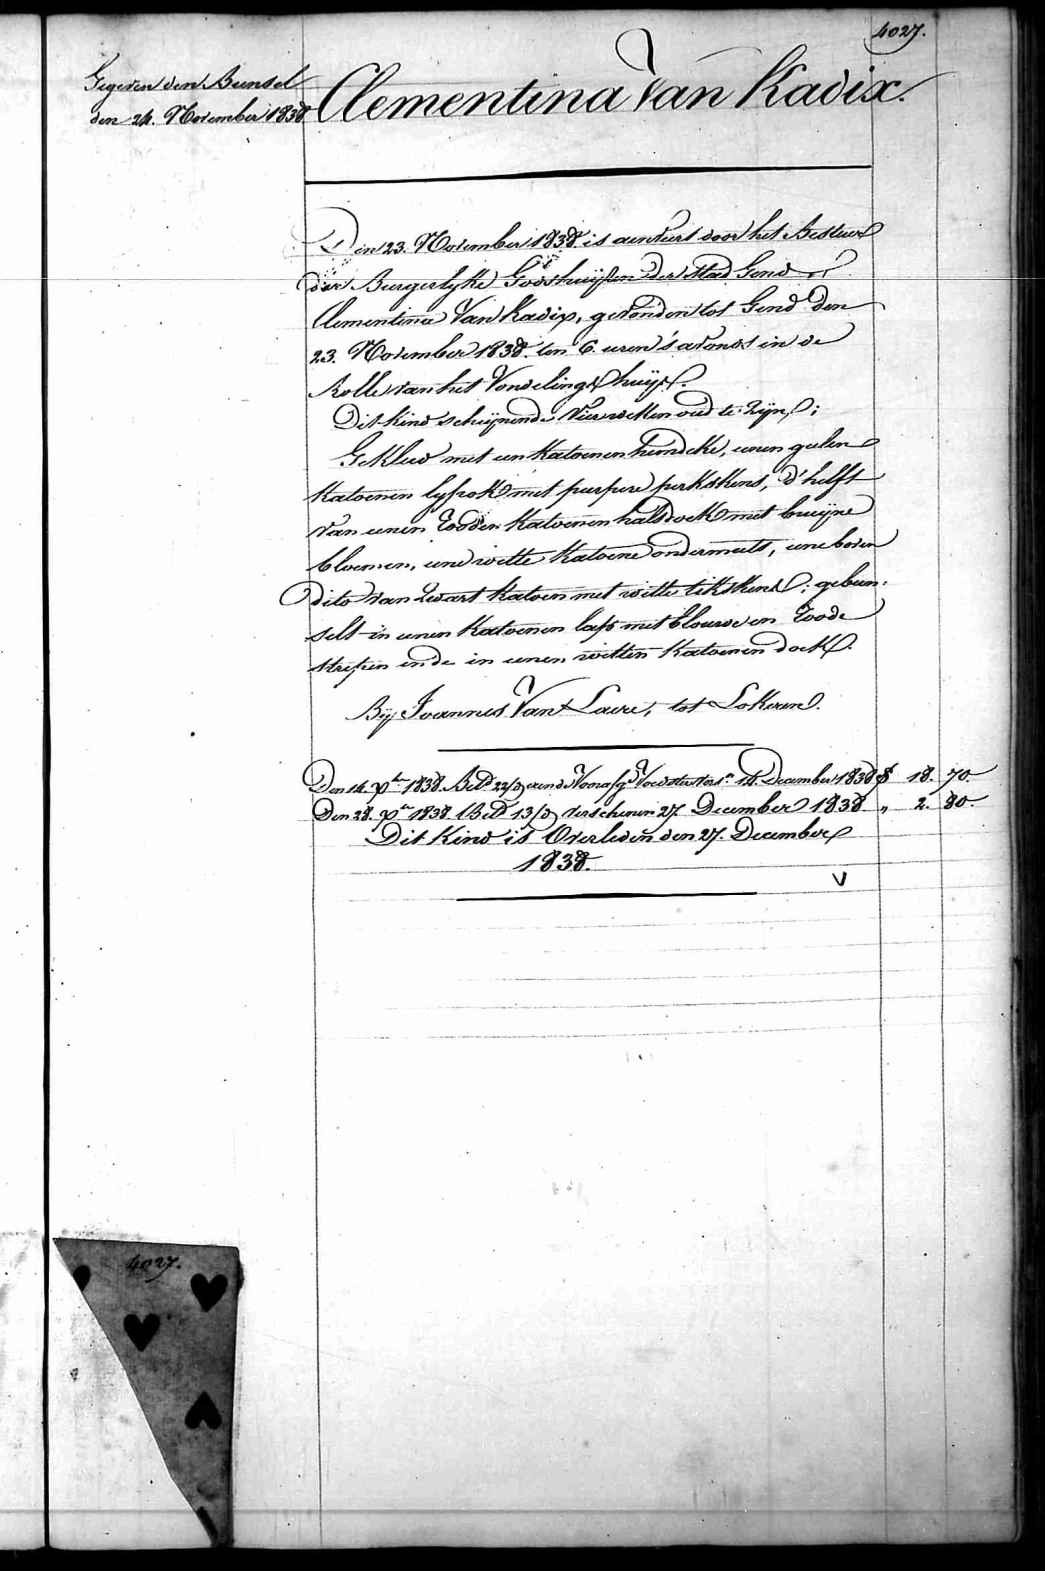 4027.
Gegeven den Bunsel
den 24. November 1838
Clementina Van Kadix.
Den 23. November 1838. is aenveirt door het Bestuur
der Burgerlyke Godshuijsen der stad Gend
Clementina Van Kadix, gevonden tot Gend den
23. November 1838. ten 6. uren 's avonds in de
Rolle van het Vondelingshuijs.
Dit Kind schijnende vier weken oud te zijn;
Gekleed met een Katoenen hemdeke, eenen geelen
Katoenen lyfrok met purpere perkskens, d'helft
van eenen rooden Katoenen halsdoek met bruijne
bloemen, eene witte Katoene ondermuts, eene boven
dito van zwart Katoen met witte tikskens; gebun:
selt in eenen Katoenen lap met blouwe en roode
strepen ende in eenen witten Katoenen doek.
Bij Joannes Van Laere, tot Lokeren.
Den 14. Xber 1838. Betd 22/3 December 1838 18. 70.
Den 28. Xber 1838. Betd 13/3 verschenen 27. December 1838 „ 2. 80.
Dit Kind is Overleden den 27. December
1838.
V
4027.